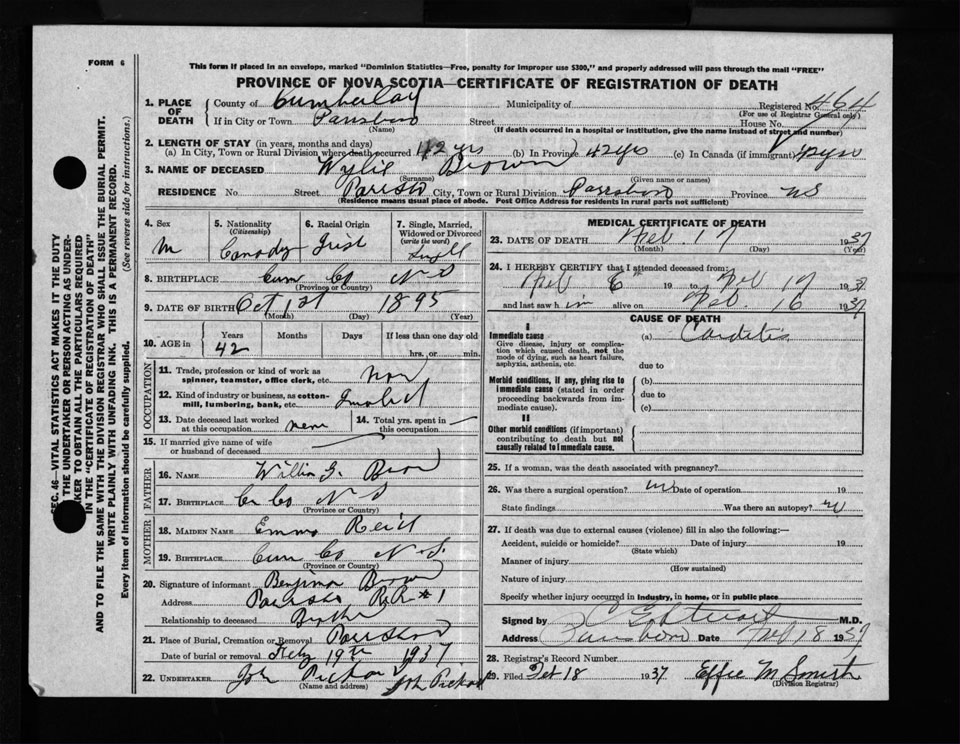 FORM 6
This form if placed in an envelope, marked "Dominion Statistics—Free, penalty for improper use $300," and properly addressed will pass through the mail "FREE"
PROVINCE OF NOVA SCOTIA—CERTIFICATE OF REGISTRATION OF DEATH
SEC. 46—VITAL STATISTICS ACT MAKES IT THE DUTY
OF THE UNDERTAKER OR PERSON ACTING AS UNDERTAKER TO OBTAIN ALL THE PARTICULARS REQUIRED
IN THE "CERTIFICATE OF REGISTRATION OF DEATH"
AND TO FILE THE SAME WITH THE DIVISION REGISTRAR WHO SHALL ISSUE THE BURIAL PERMIT.
WRITE PLAINLY WITH UNFADING INK. THIS IS A PERMANENT RECORD.
Every item of information should be carefully supplied. (See reverse side for instructions.)
1. PLACE OF DEATH
County of Municipality of Registered No. 464
(For use of Registrar General only)
If in City or Town Parrsboro Street House No.
(Name) (If death occurred in a hospital or institution, give the name instead of street and number)
2. LENGTH OF STAY (in years, months and days)
(a) In City, Town or Rural Division where death occurred 42 yrs (b) In Province 42 yrs (c) In Canada (if immigrant) 42 yrs
3. NAME OF DECEASED Wylie Brown
(Surname) (Given name or names)
RESIDENCE No Street City, Town or Rural Division Parrsboro Province NS
(Residence means usual place of abode. Post Office Address for residents in rural parts not sufficient)
4. Sex M
5. Nationality (Citizenship)
6. Racial Origin Irish
7. Single, Married, Widowed or Divorced (write the word)
8. BIRTHPLACE Cum Co N S
(Province or Country)
9. DATE OF BIRTH Oct 1st 1895
(Month) (Day) (Year)
10. AGE in Years 42 Months Days If less than one day old hrs. or min.
OCCUPATION
11. Trade, profession or kind of work as spinner, teamster, office clerk, etc.
12. Kind of industry or business, as cotton-mill, lumbering, bank, etc.
13. Date deceased last worked at this occupation
14. Total yrs. spent in this occupation
15. If married give name of wife or husband of deceased
FATHER
16. NAME
17. BIRTHPLACE Co N S
(Province or Country)
MOTHER
18. MAIDEN NAME Emma Reid
19. BIRTHPLACE Cum Co N. S.
(Province or Country)
20. Signature of informant Benjiman Brown
Address R.R. #1
Relationship to deceased Brother
21. Place of Burial, Cremation or Removal
Date of burial or removal 19th 1937
22. UNDERTAKER
(Name and address)
MEDICAL CERTIFICATE OF DEATH
23. DATE OF DEATH Feb. 17 1937
(Month) (Day) (Year)
24. I HEREBY CERTIFY that I attended deceased from:
Feb 6th 19 to Feb 17 1937
and last saw h im alive on Feb. 16 1937
CAUSE OF DEATH
I
Immediate cause
Give disease, injury or complication which caused death, not the mode of dying, such as heart failure, asphyxia, asthenia, etc.
(a) Carditis
due to
Morbid conditions, if any, giving rise to immediate cause (stated in order proceeding backwards from immediate cause).
(b)
due to
(c)
II
Other morbid conditions (if important) contributing to death but not causally related to immediate cause.
25. If a woman, was the death associated with pregnancy?
26. Was there a surgical operation? Date of operation 19
State findings Was there an autopsy? no
27. If death was due to external causes (violence) fill in also the following:—
Accident, suicide or homicide? Date of injury 19
(State which)
Manner of injury
(How sustained)
Nature of injury
Specify whether injury occurred in industry, in home, or in public place
Signed by M.D.
Address Parrsboro Date Feb 18 1937
28. Registrar's Record Number
29. Filed 18 1937 Effie M Smith
(Division Registrar)